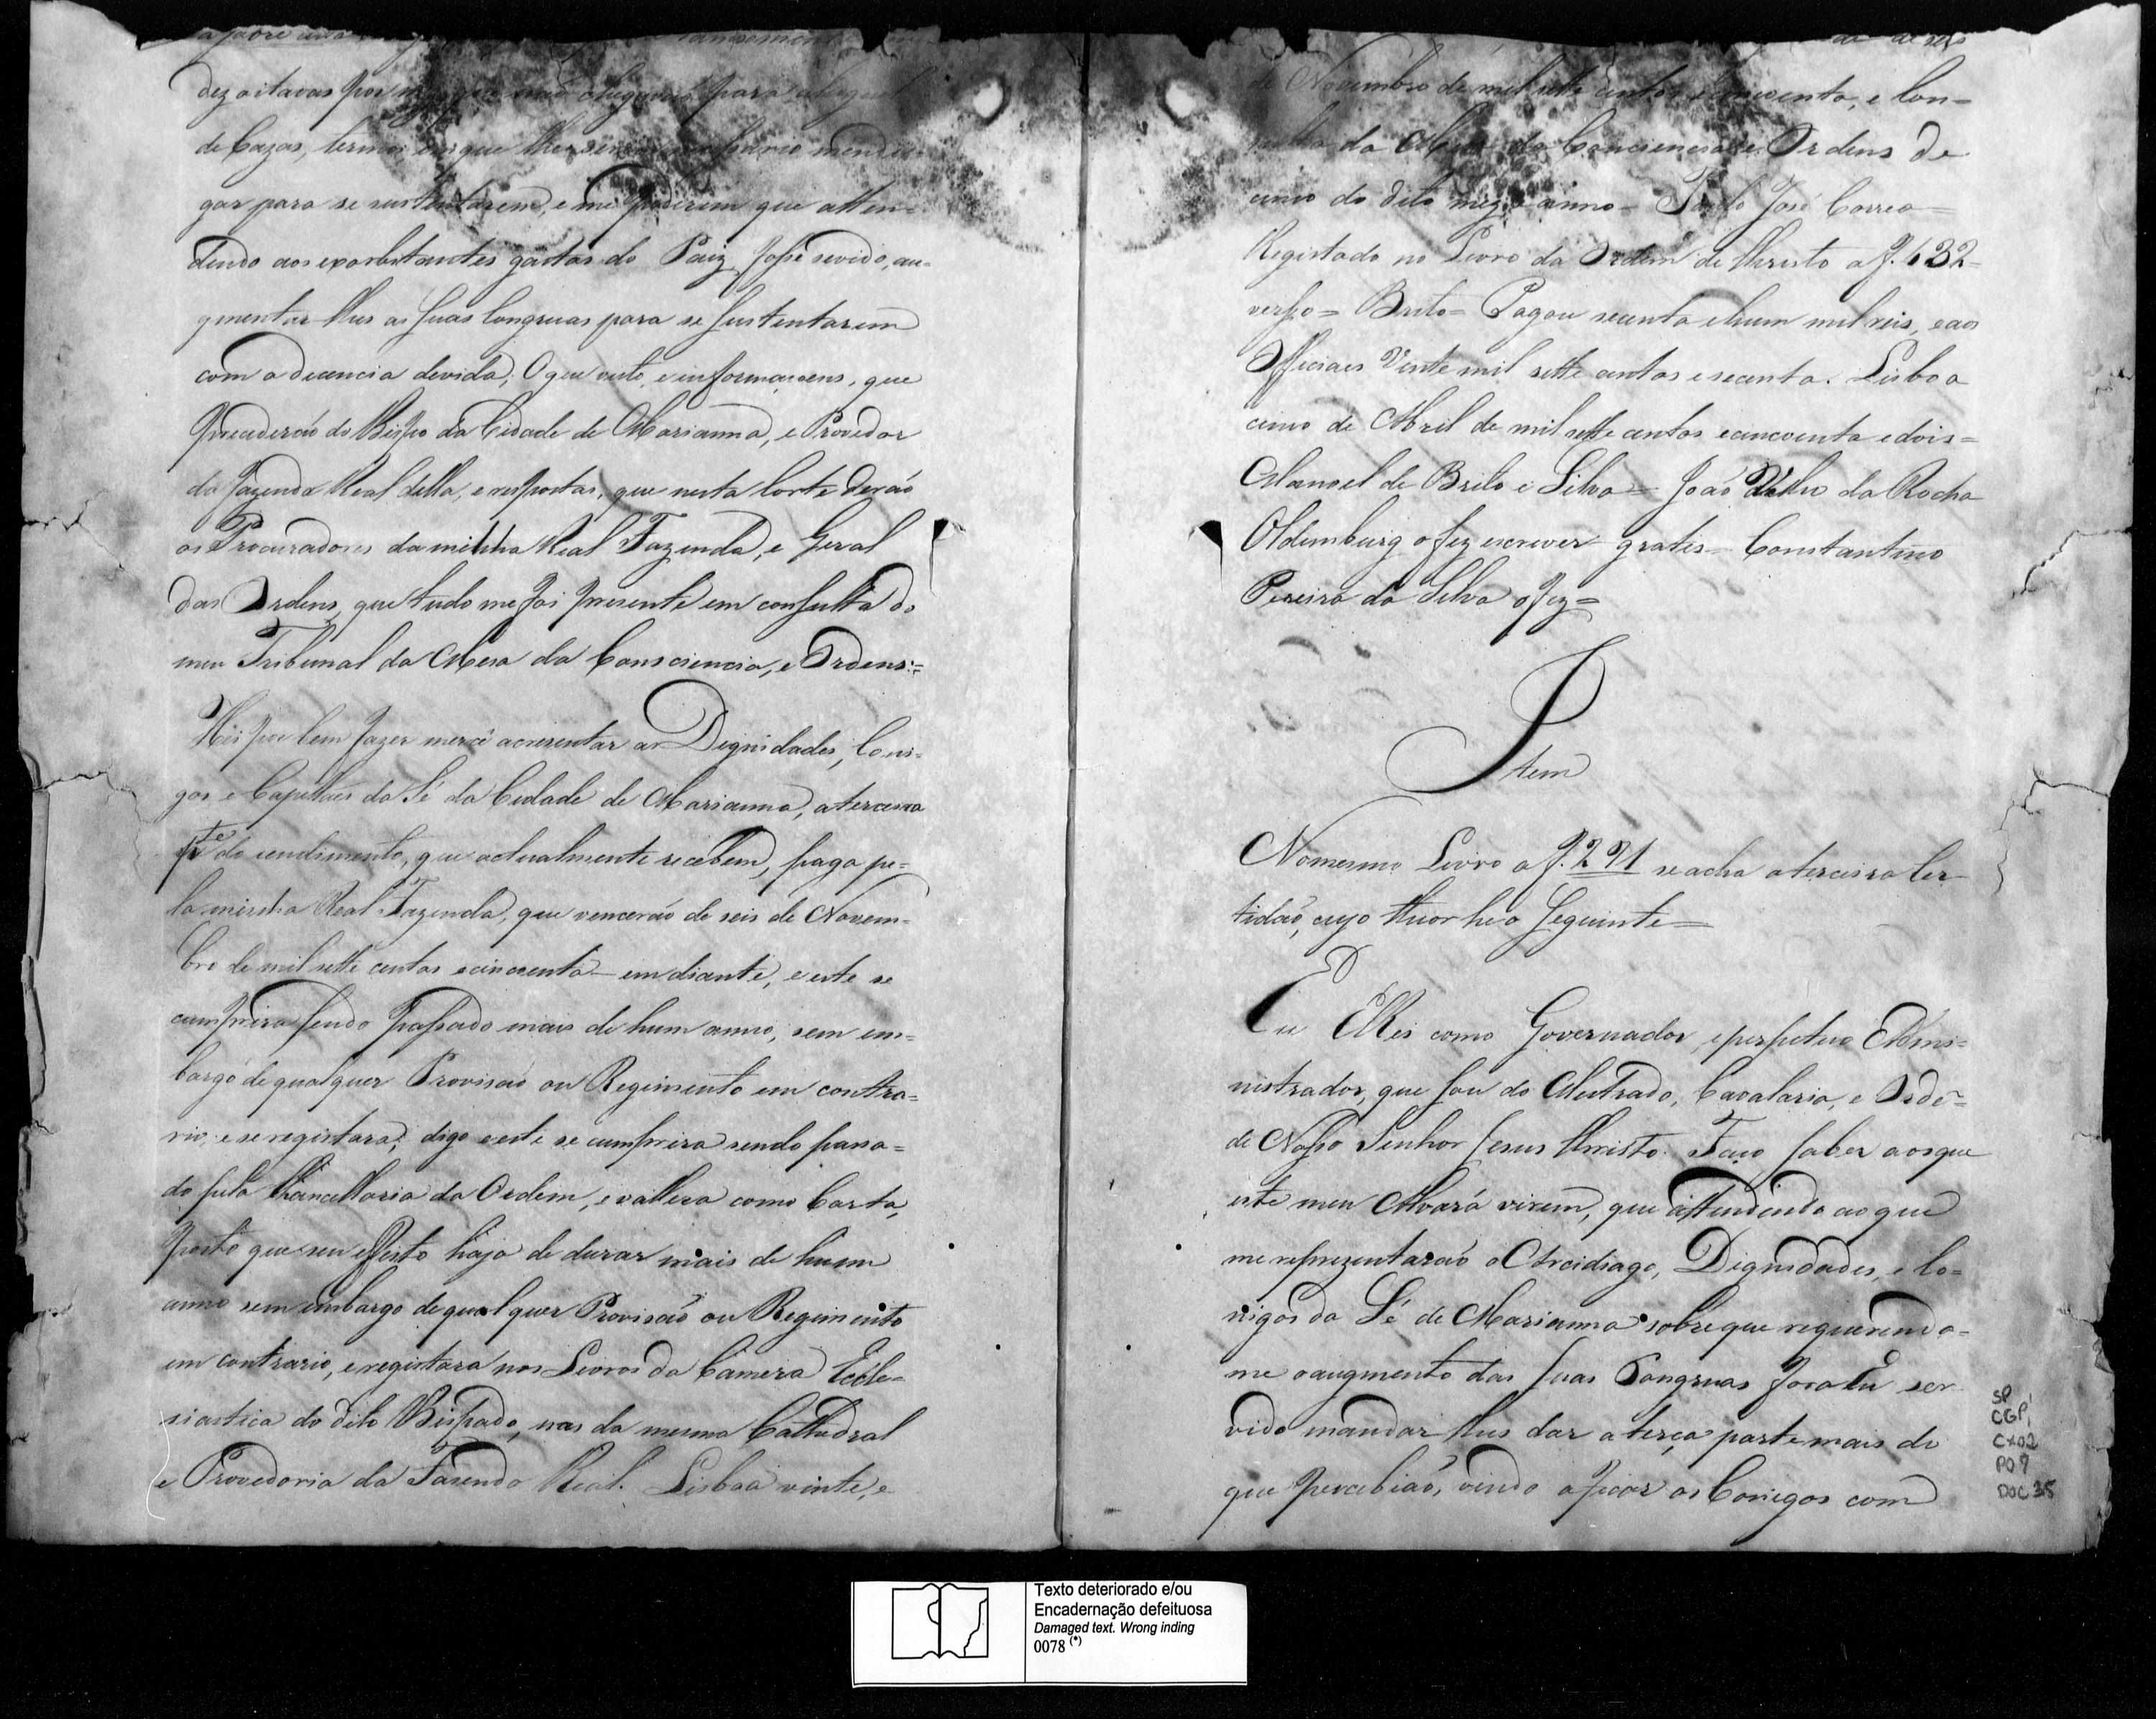 dez oitavas por mez que não chegavão para aluguel
de Cazas, termos em que lhes era necessario mendi-
gar para se sustentarem, e me pedirem que atten-
dendo aos exorbitantes gastos do Paiz, fosse servido, au-
gmentar lhes as suas Congruas para se sustentarem
com a decencia devida; O que visto, e informaçoens, que
precederão do Bispo da Cidade de Marianna, e Provedor
da Fazenda Real della, e respostas, que nesta Corte derão
os Procuradores da minha Real Fazenda, e Geral
das Ordens, que tudo me foi presente em consulta do
meu Tribunal da Mesa da Consciencia, e Ordens:=
Hei por bem fazer mercê acrescentar as Dignidades, Cone-
gos e Capellaens da Sé da Cidade de Marianna, a terceira
pte do rendimento, que actualmente recebem, paga pe-
la minha Real Fazenda, que vencerão de seis de Novem-
bro de mil sette centos e cincoenta em diante, e este se
cumprira sendo passado mais de hum anno, sem em-
bargo de qualquer Provisão ou Regimento em contra-
rio, e se registara, digo e este se cumprira sendo passa-
do pela Chancellaria da Ordem, e vallera como Carta,
posto que seu effeito haja de durar mais de hum
anno sem embargo de qualquer Provisão ou Regimento
em contrario, e registara nos Livros da Camera Eccle-
siastica do dito Bispado, nas da mesma Cathedral
e Provedoria da Fasenda Real. Lisboa vinte, e
de Novembro de mil sette centos e cincoenta, e Con-
sulta da Mesa da Consciencia e Ordens de
cinco do dito mez e anno = Paulo José Correa =
Registado no Livro da Ordem de Christo a f. 132
verso = Brito = Pagou secenta e hum mil reis, e aos
Officiaes Vinte mil sette centos e secenta. Lisboa
cinco de Abril de mil sette centos e cincoenta e dois =
Manoel de Brito e Silva = João Velho da Rocha
Oldemburg o fez escrever gratis = Constantino
Pereira da Silva o fez =
Item
No mesmo Livro a f. 291 se acha a terceira Cer
tidão, cujo theor he o seguinte =
Eu ElRei como Governador, e perpetuo Admi-
nistrador, que sou do Mestrado, Cavalaria, e Orde-
de Nosso Senhor Jesus Christo. Faço saber aos que
este meu Alvará virem, que attendendo ao que
me reprezentarão o Arcidiago, Dignidades, e Co-
nigos da Sé de Marianna sobre que requerendo-
me o augmento das suas Congruas fora Eu ser
vido mandar lhes dar a terça parte mais do
que percebião, vindo a ficar os Conigos com
SP
CGP1
CX02
P07
DOC 35
Texto deteriorado e/ou
Encadernação defeituosa
Damaged text. Wrong inding
0078 (*)